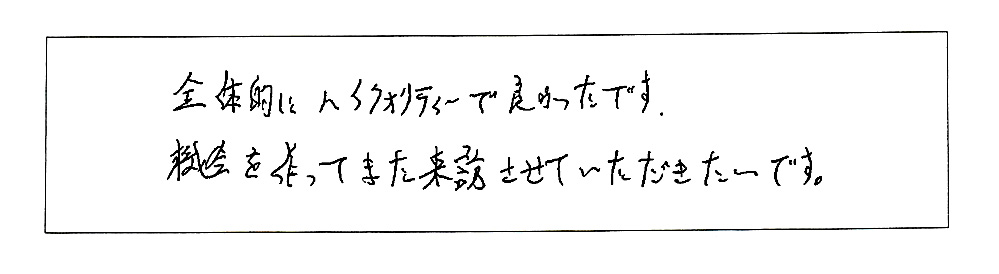 全体的にハイクオリティーで良かったです.
機会を作ってまた来訪させていただきたいです。